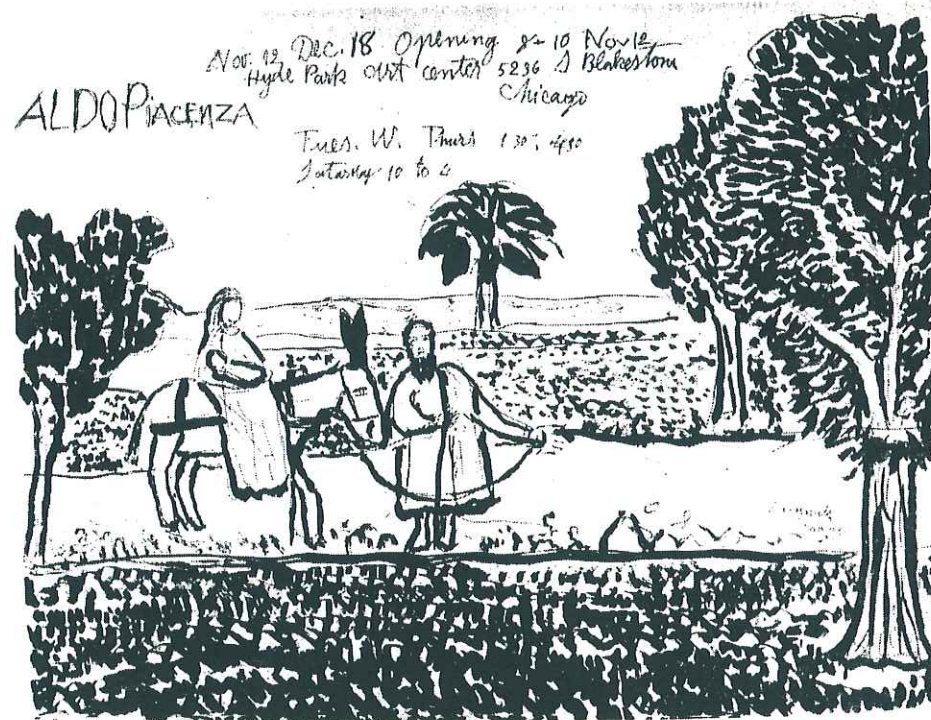 Nov. 12 Dec. 18 Opening 8-10 Nov 12
Hyde Park Art center 5236 S Blakestone
Chicago
ALDO PIACENZA
Tues. W. Thurs 1 30; 4 30
Satarday 10 to 4